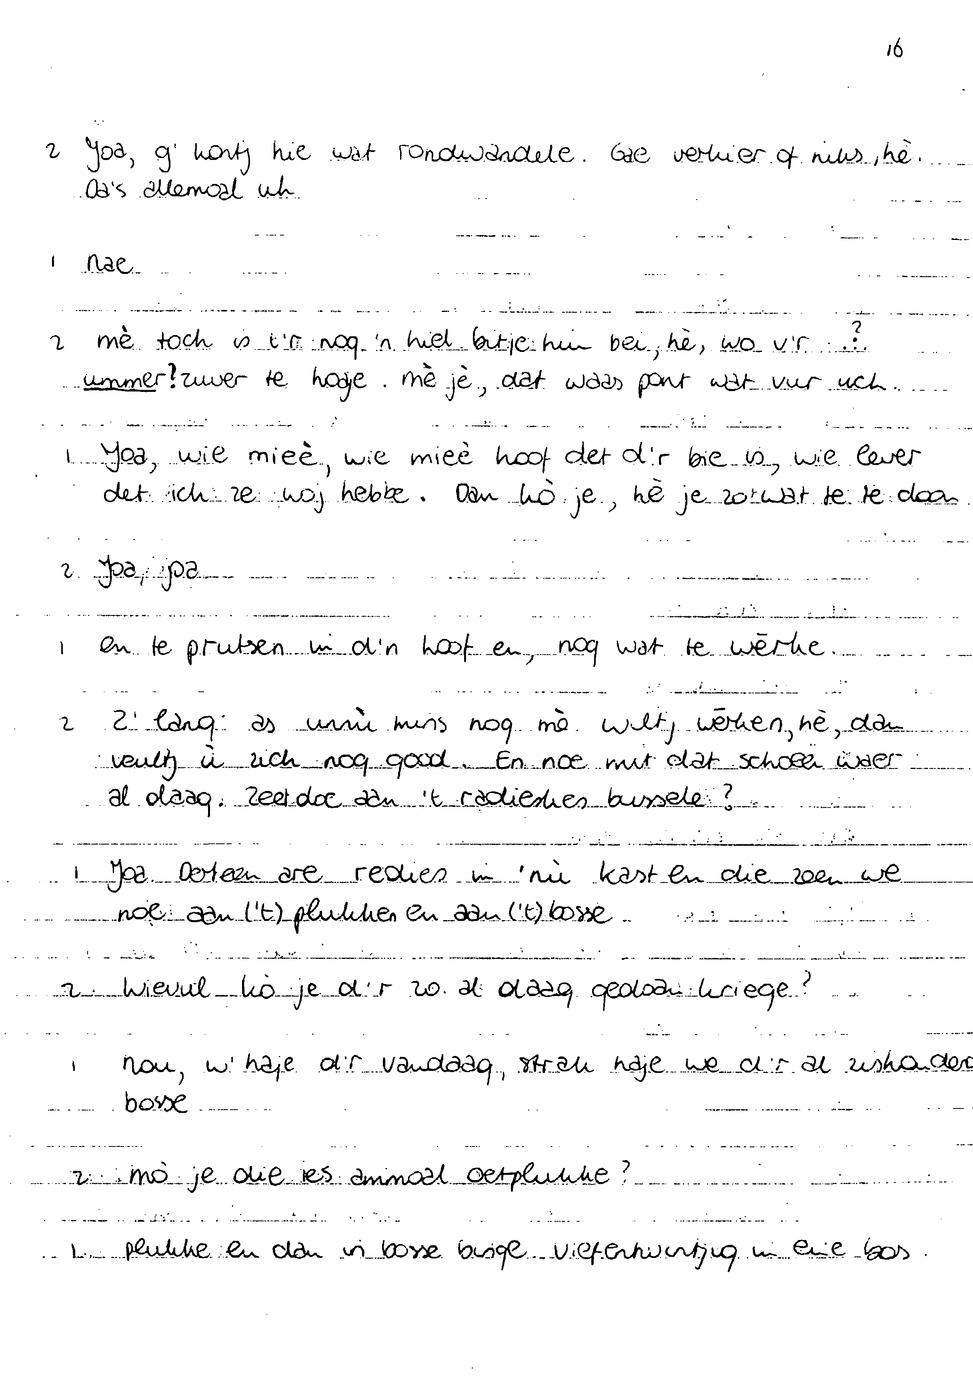 16
2 Joa, g' kontj hie wat rondwandele. Gae verkier of niks, hè.
Da's allemoal uk
1 nae
2 mè toch is t'r nog 'n hiel bitje hin bei, hè, wo v'r ..?
ummer! zuver te hoje. mè jè, dat waas pont wat vur uch.
1 Joa, wie mieè, wie mieè hoof det d'r bie is, wie lever
det ich ze hoj hebbe. Dan kò je, hè je zo:wat te te doon
2 Joa, joa
1 en te prutsen in d'n hoof en, nog wat te wērke.
2 Z' lang: as unnü mins nog mè wiltj wērken, hè, dan
veultj ù zich nog good. En noe mit dat schoen waer
al daag. Zeet doe aan 't radieskes bussele?
1 Joa Doteen are redies in 'nù kast en die zoen we
noe aan ('t) plukken en aan ('t) bosse
2 wievul kò je d'r zo al daag gedoan kriege?
1 nou, w' haje d'r vandaag, strak haje we d'r al zeshonderd
bosse
2 mò je die ies ammoal oetplukke?
1 plukke en dan in bosse binge viefentwintjig in eine bos.